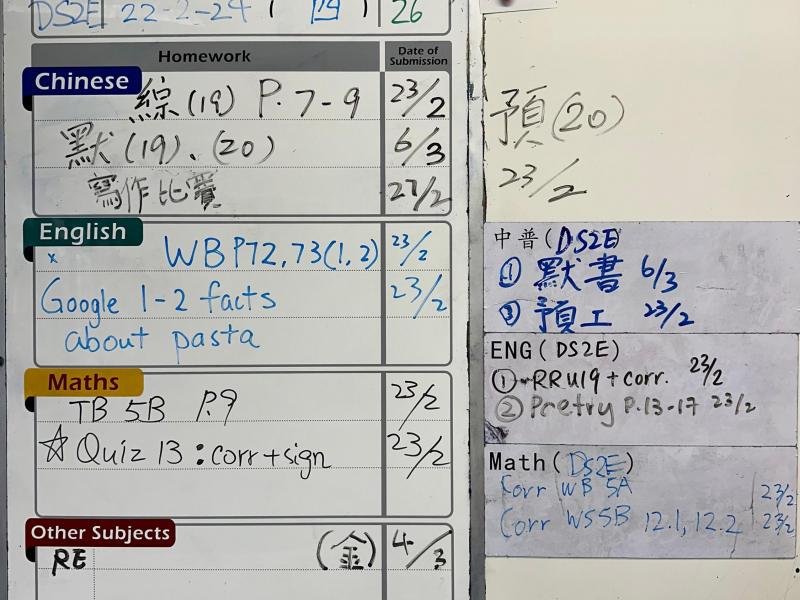 DS2E 22-2-24 (四) 26
Homework
Date of
Submission
Chinese
綜(19) P. 7-9 23/2
默(19)、(20) 6/3
寫作比賽 27/2
English
x WB P72,73(1,2) 23/2
Google 1-2 facts 23/2
about pasta
Maths
TB 5B P.9 23/2
☆ Quiz 13 : corr + sign 23/2
Other Subjects
RE (金) 4/3
預(20)
23/2
中普(DS2E)
① 默書 6/3
③ 預工 23/2
ENG(DS2E)
① RR U19 + corr. 23/2
② Poetry P.13-17 23/2
Math(DS2E)
Corr WB 5A 23/2
Corr WS5B 12.1, 12.2 23/2